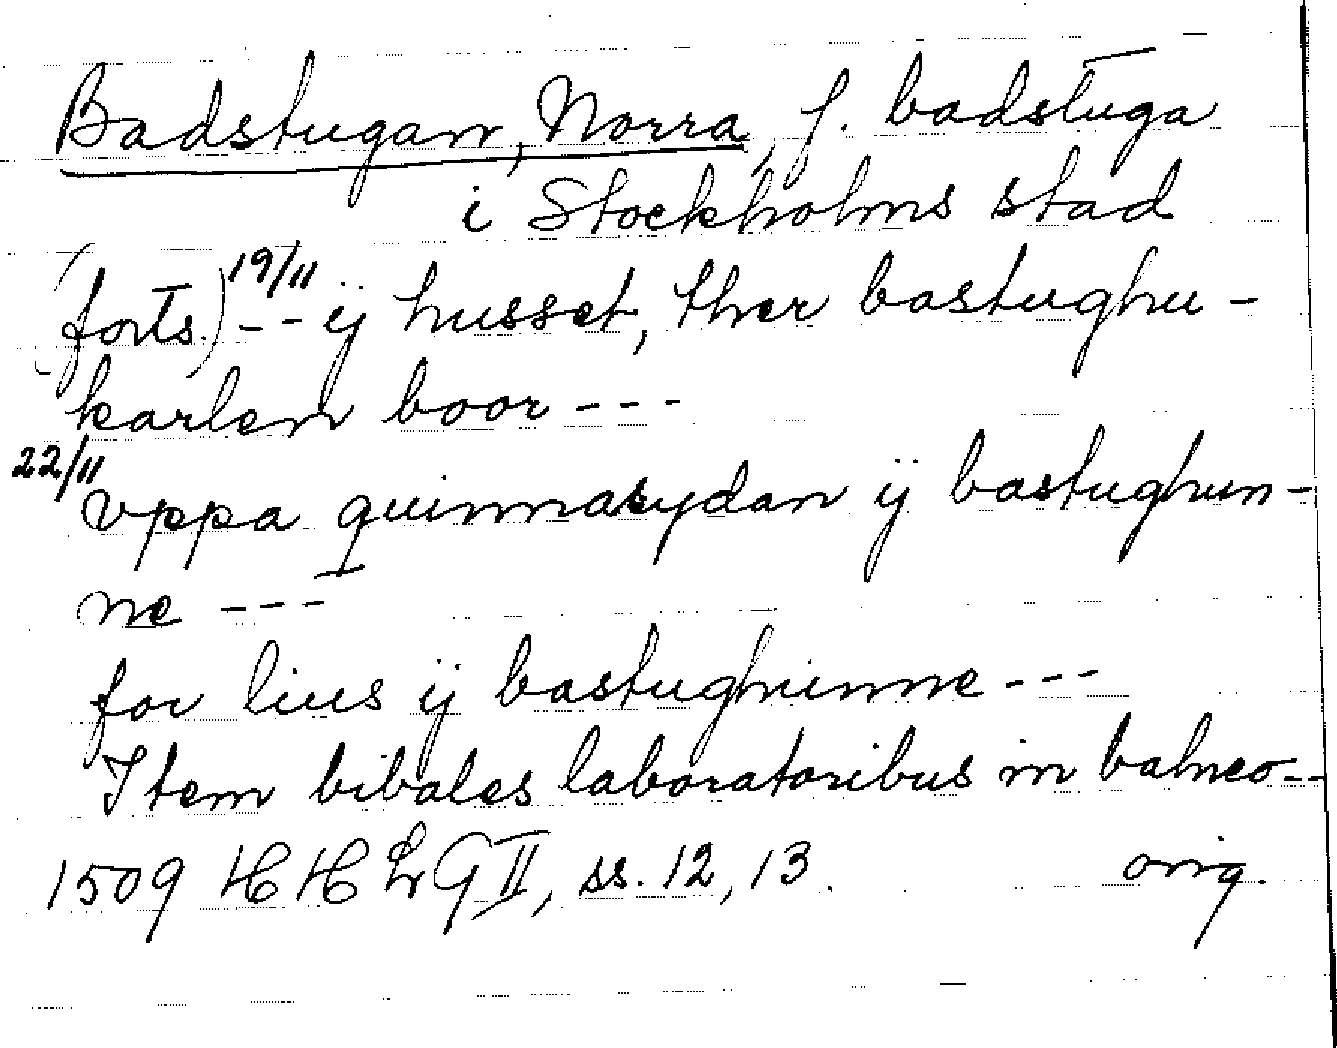 Badstugan, Norra, f. badstuga
i Stockholms stad
(forts.) 19/11 -- ij husset, ther bastughu-
karlen boor ---
22/11 vppa quinnasydan ij bastughun-
ne ---
for lius ij bastughunne ---
Item bibales laboratoribus in balneo --
1509 HH II, ss. 12, 13. orig.